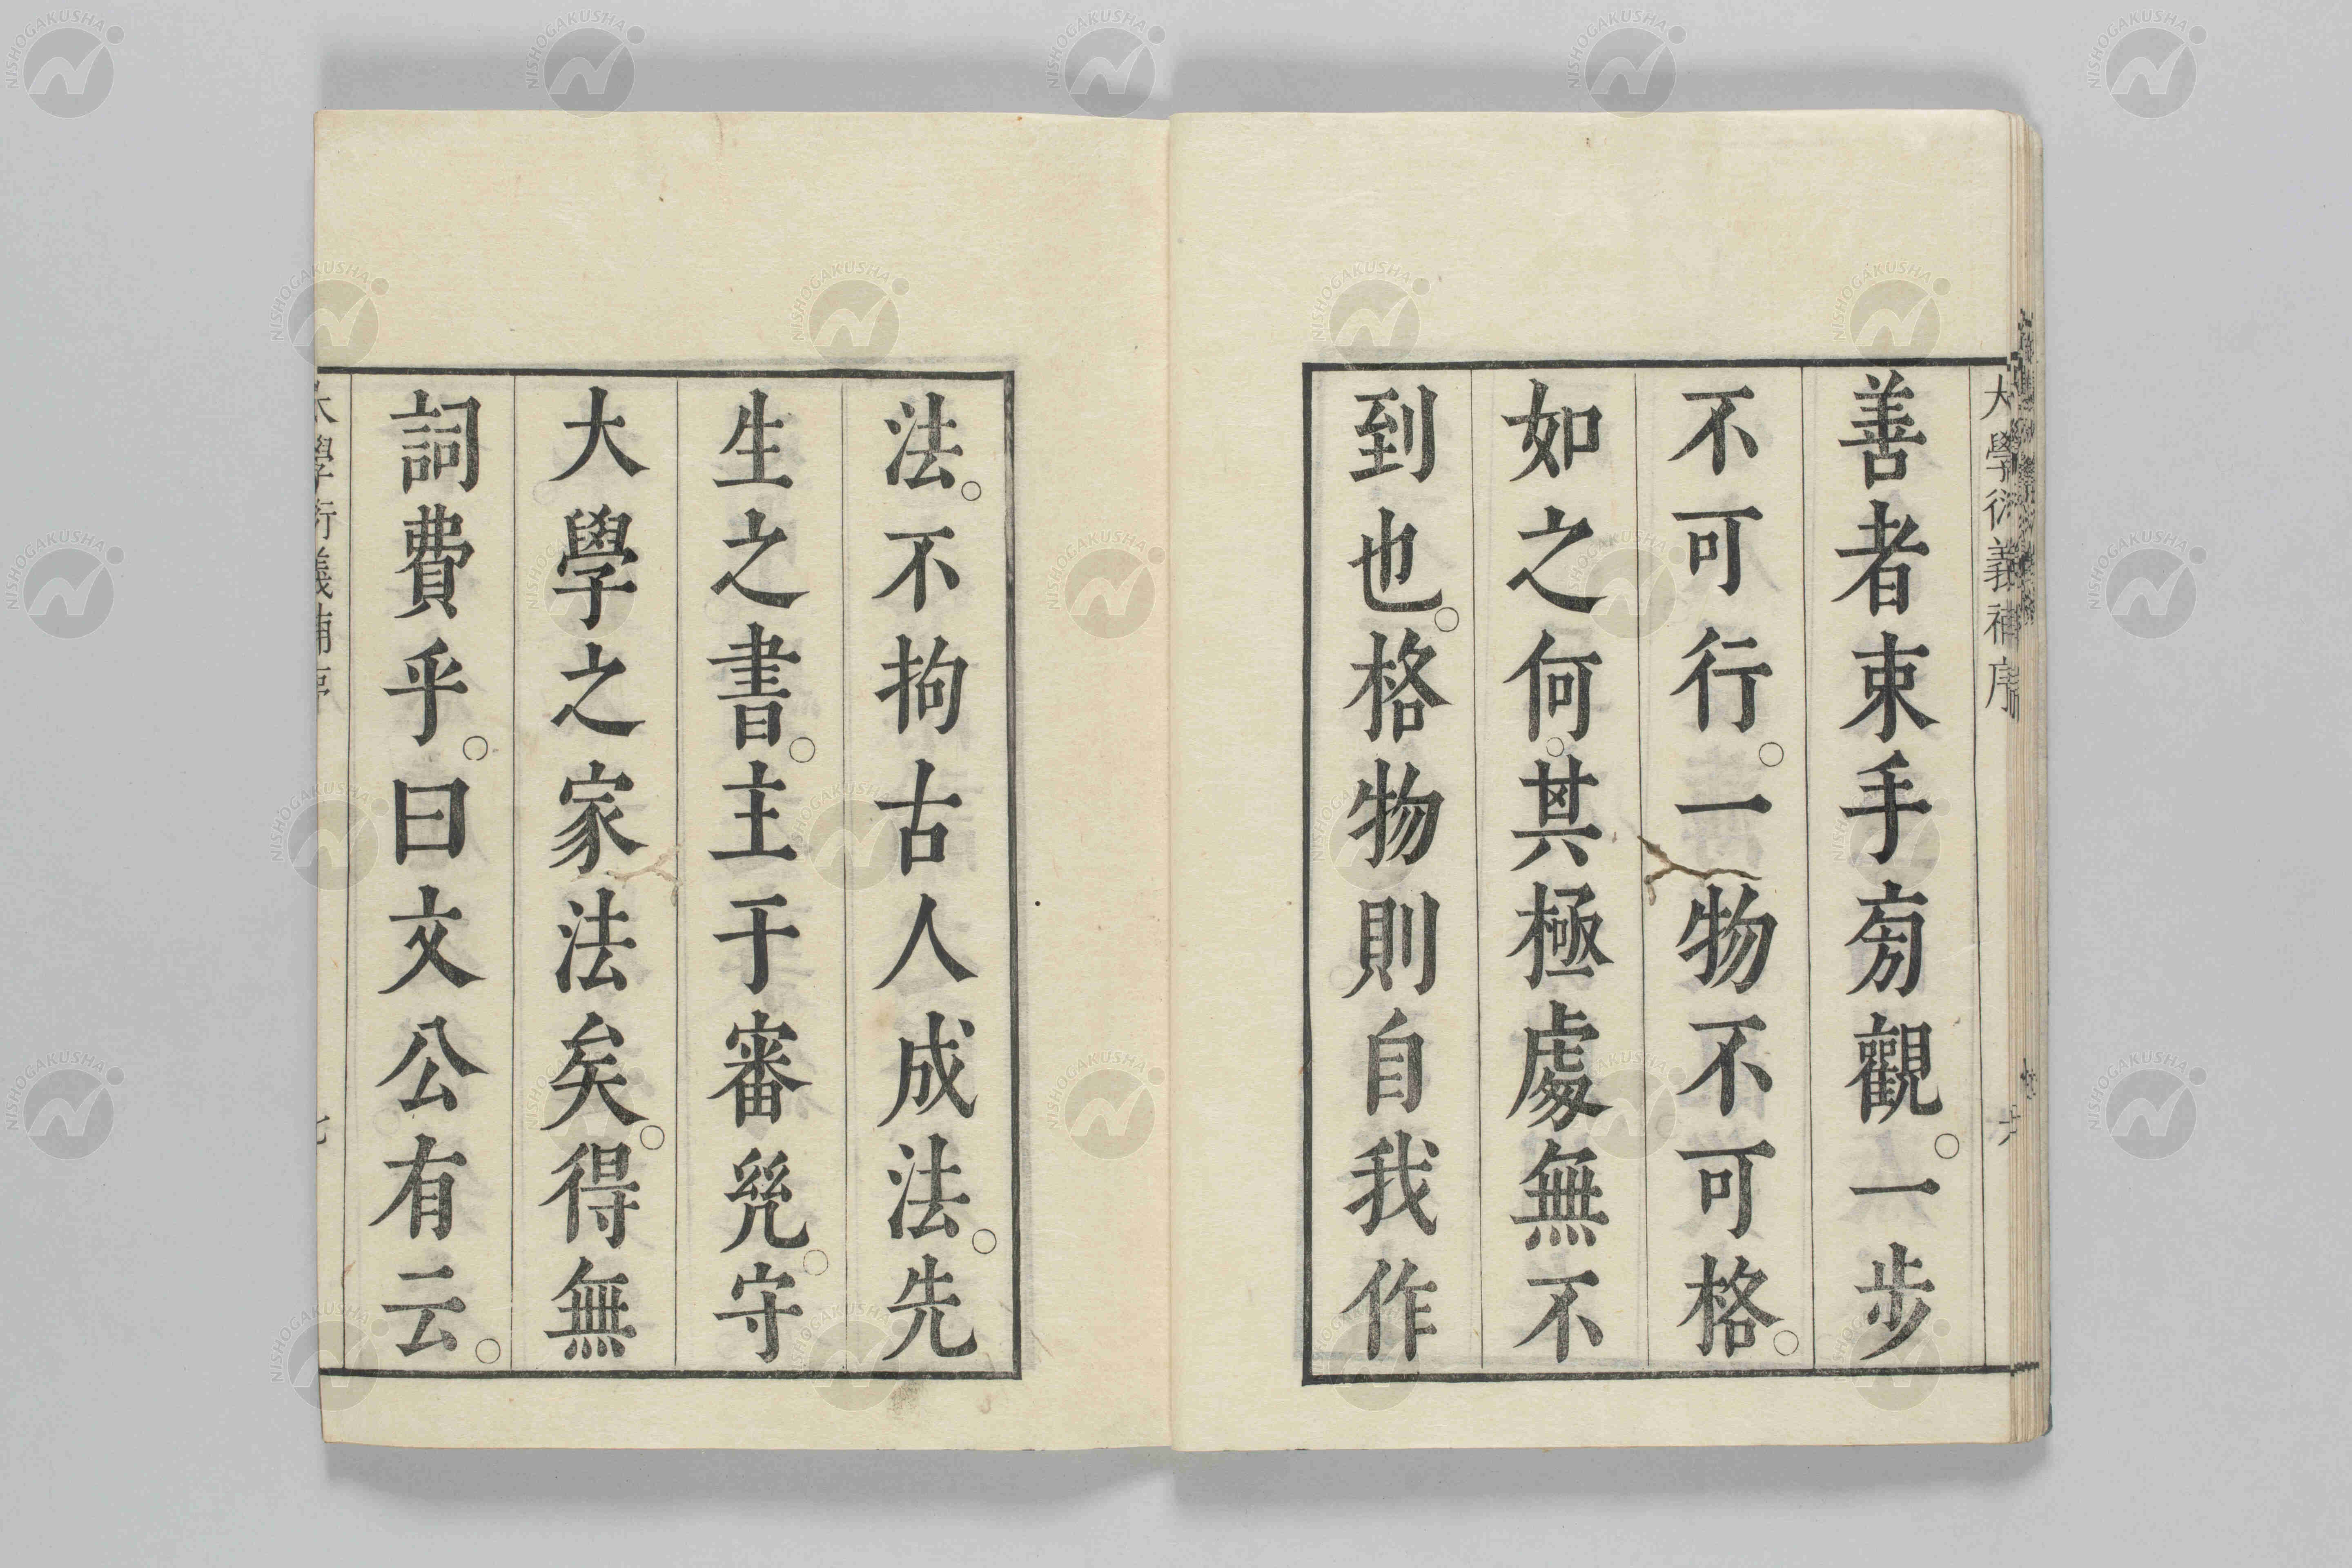 大學衍義補序
六
善者束手㫄觀。一步
不可行。一物不可格。
如之何。其極處無不
到也。格物則自我作
法。不拘古人成法。先
生之書。主于審凳。守
大學之家法矣。得無
詞費乎。曰文公有云。
大學衍義補序
七
NISHOGAKUSHA